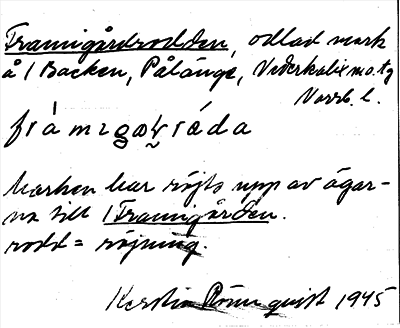 Framigårdrodden, odlad mark
å / Backen, Pålänge, Nederkalix sn. o. tg
Norrb. l.
frámɩgǝɷ̨ṛróda
Marken har röjts upp av ägar-
na till / Framigården.
rodd = röjning.
Kerstin Rönnquist 1945